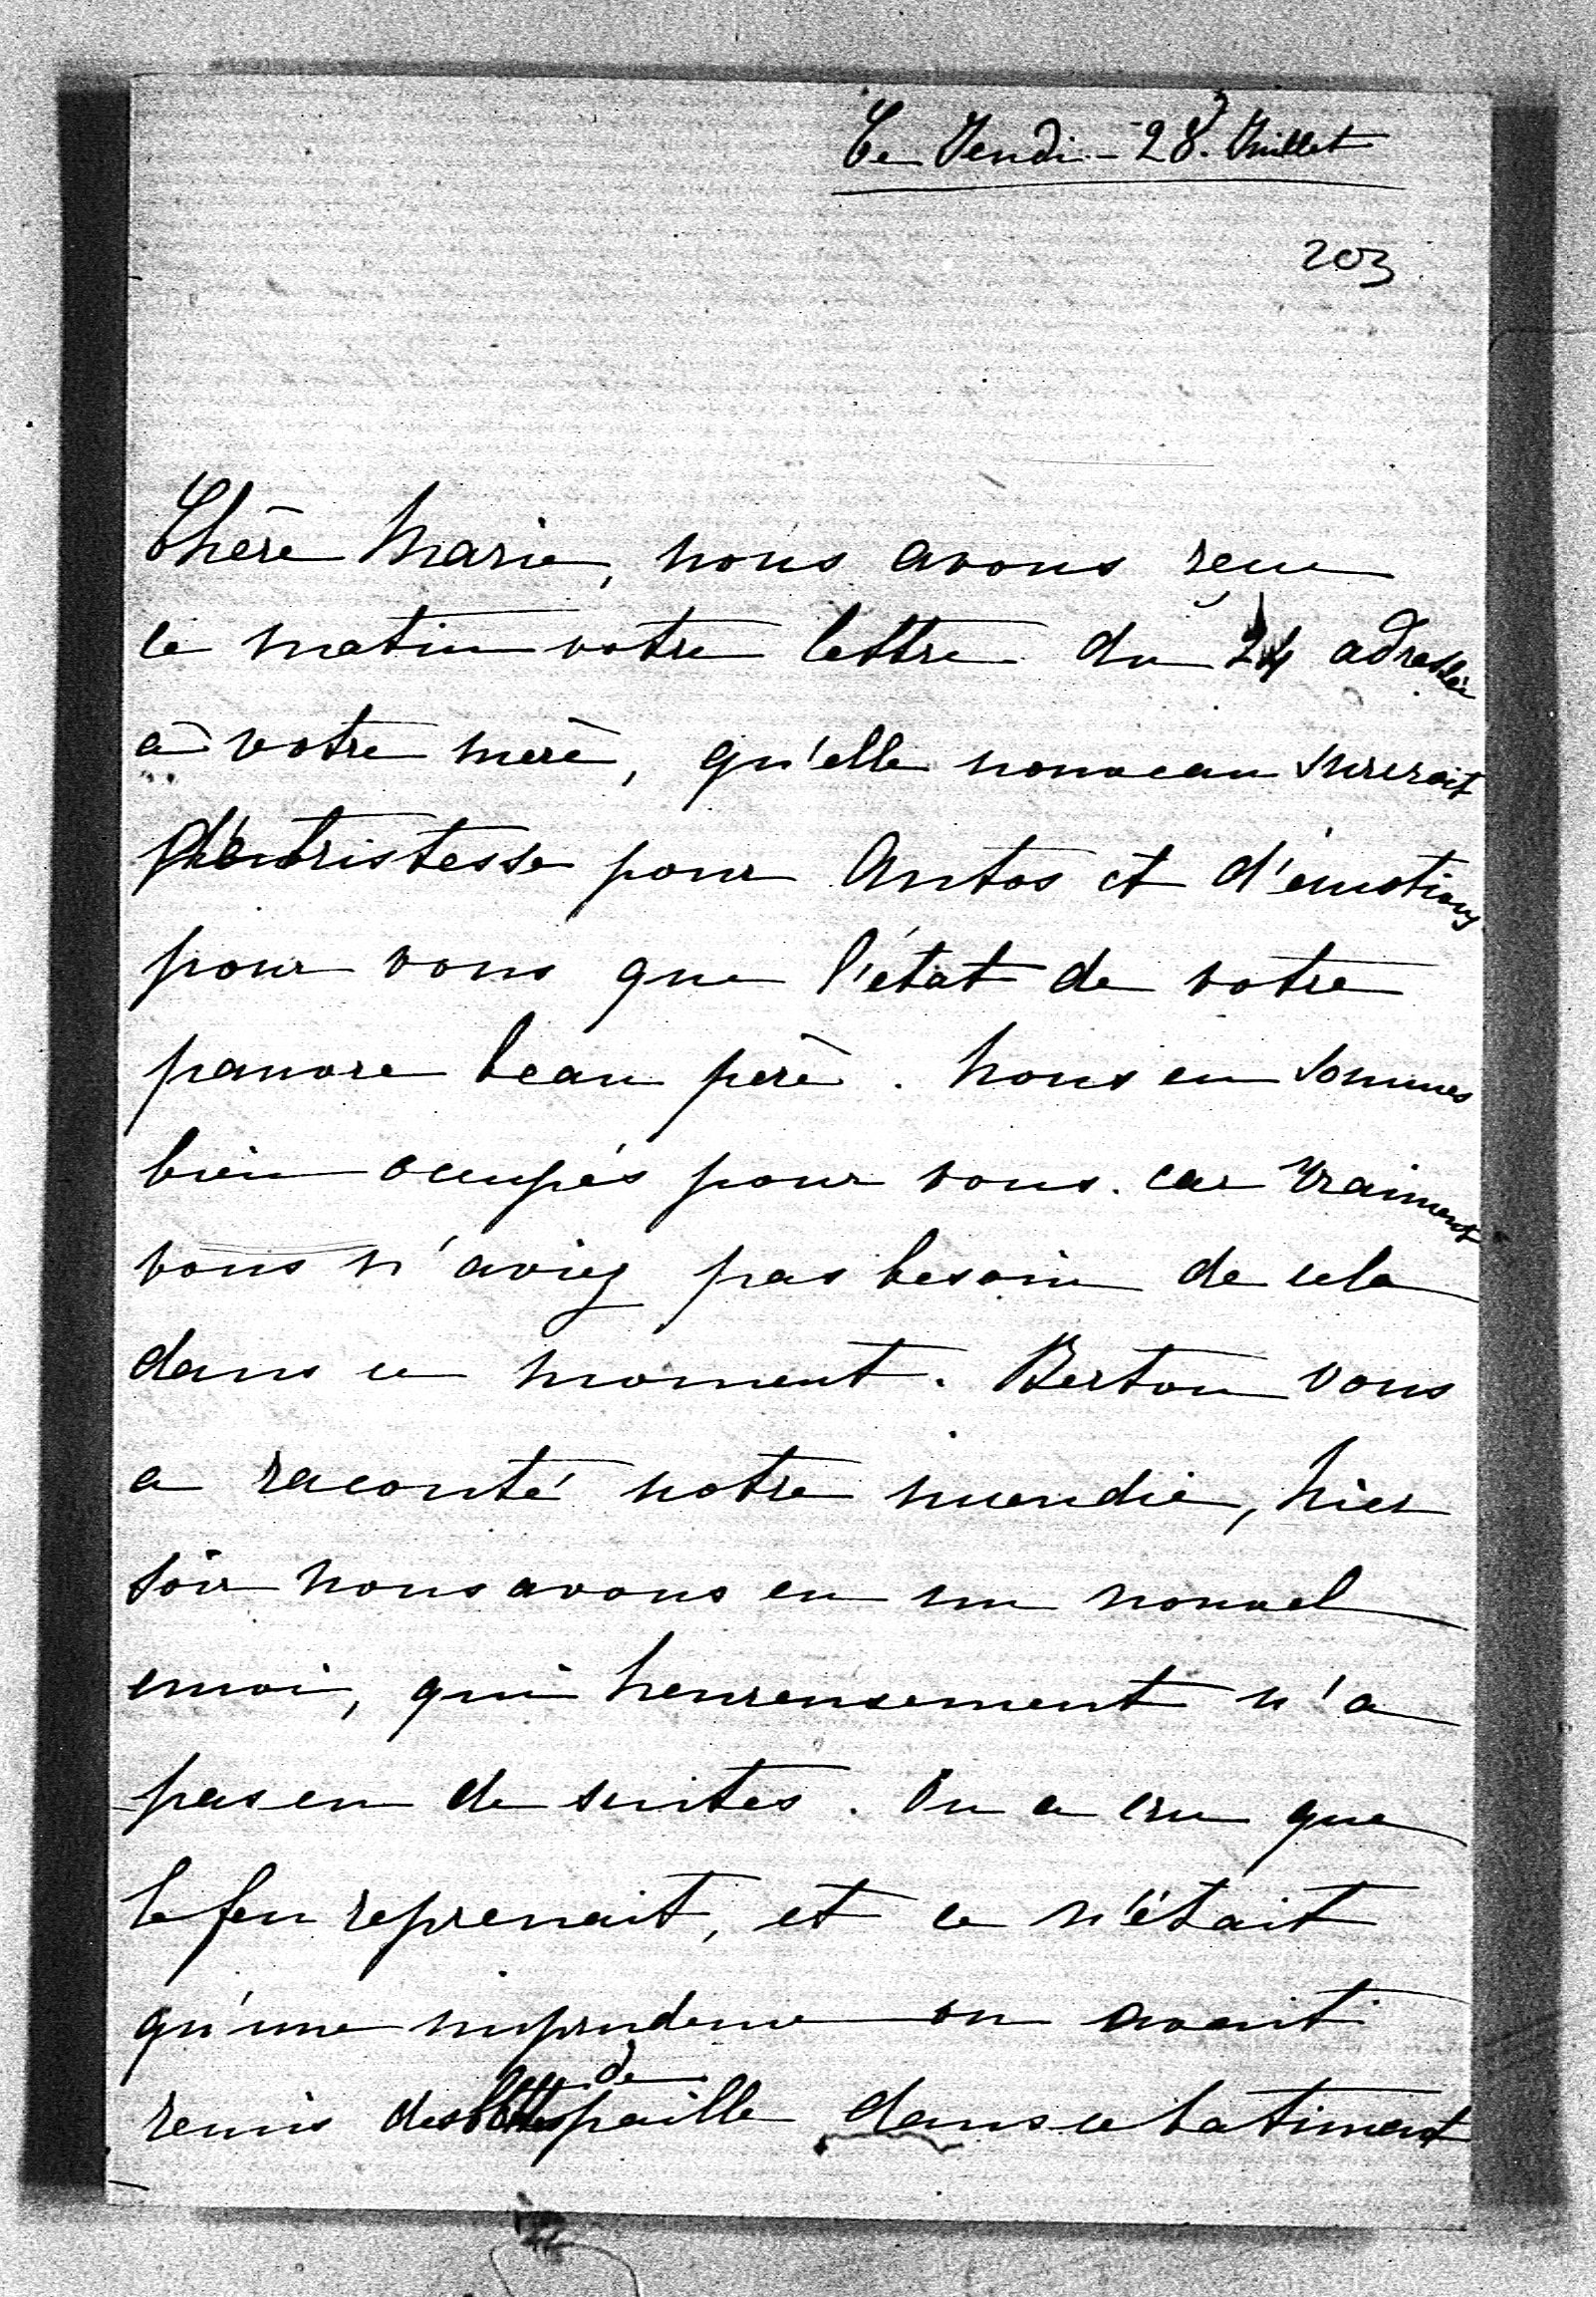 Ce Jeudi - 28. Juillet
203
Chère Marie, nous avons reçu
ce matin votre lettre du 24 adressée
à votre mère, qu'elle nouveau surcroit
de tristesse pour Antos et d'émotions
pour vous que l'état de votre
pauvre beau père. Nous en sommes
bien occupés pour vous. car vraiment
vous n'aviez pas besoin de cela
dans ce moment. Berton vous
a raconté notre incendie, hier
soir nous avons eu un nouvel
emoi, qui heureusement n'a
pas eu de suites. On a cru que
le feu reprenait, et ce n'était
qu'une imprudence on avait
remis des bottes de paille dans ce batiment